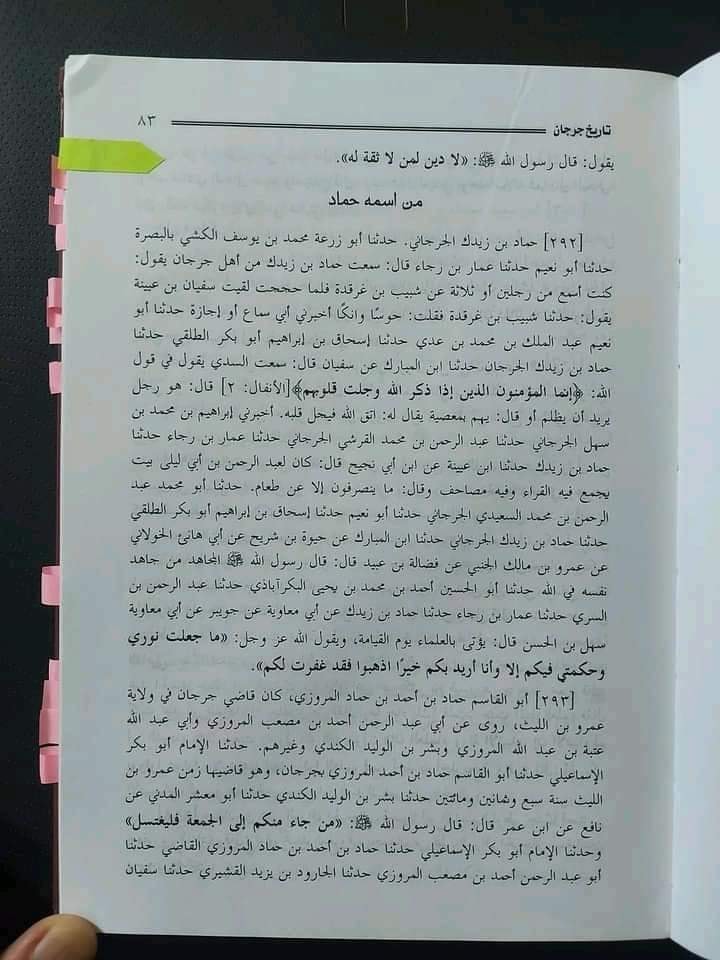 تاريخ جرجان ٨٣
يقول: قال رسول الله ﷺ: «لا دين لمن لا ثقة له».
من اسمه حماد
[٢٩٢] حماد بن زيدك الجرجاني. حدثنا أبو زرعة محمد بن يوسف الكشي بالبصرة
حدثنا أبو نعيم حدثنا عمار بن رجاء قال: سمعت حماد بن زيدك من أهل جرجان يقول:
كنت أسمع من رجلين أو ثلاثة عن شبيب بن غرقدة فلما حججت لقيت سفيان بن عيينة
يقول: حدثنا شبيب بن غرقدة فقلت: حوسًا وانكًا أخبرني أبي سماع أو إجازة حدثنا أبو
نعيم عبد الملك بن محمد بن عدي حدثنا إسحاق بن إبراهيم أبو بكر الطلقي حدثنا
حماد بن زيدك الجرجان حدثنا ابن المبارك عن سفيان قال: سمعت السدي يقول في قول
الله: ﴿إنما المؤمنون الذين إذا ذكر الله وجلت قلوبهم﴾[الأنفال: ٢] قال: هو رجل
يريد أن يظلم أو قال: يهم بمعصية يقال له: اتق الله فيجل قلبه. أخبرني إبراهيم بن محمد بن
سهل الجرجاني حدثنا عبد الرحمن بن محمد القرشي الجرجاني حدثنا عمار بن رجاء حدثنا
حماد بن زيدك حدثنا ابن عيينة عن ابن أبي نجيح قال: كان لعبد الرحمن بن أبي ليلى بيت
يجمع فيه القراء وفيه مصاحف وقال: ما ينصرفون إلا عن طعام. حدثنا أبو محمد عبد
الرحمن بن محمد السعيدي الجرجاني حدثنا أبو نعيم حدثنا إسحاق بن إبراهيم أبو بكر الطلقي
حدثنا حماد بن زيدك الجرجاني حدثنا ابن المبارك عن حيوة بن شريح عن أبي هانئ الخولاني
عن عمرو بن مالك الجنبي عن فضالة بن عبيد قال: قال رسول الله ﷺ المجاهد من جاهد
نفسه في الله حدثنا أبو الحسين أحمد بن محمد بن يحيى البكرآباذي حدثنا عبد الرحمن بن
السري حدثنا عمار بن رجاء حدثنا حماد بن زيدك عن أبي معاوية عن جويبر عن أبي معاوية
سهل بن الحسن قال: يؤتى بالعلماء يوم القيامة، ويقول الله عز وجل: «ما جعلت نوري
وحكمتي فيكم إلا وأنا أريد بكم خيرًا اذهبوا فقد غفرت لكم».
[٢٩٣] أبو القاسم حماد بن أحمد بن حماد المروزي، كان قاضي جرجان في ولاية
عمرو بن الليث، روى عن أبي عبد الرحمن أحمد بن مصعب المروزي وأبي عبد الله
عتبة بن عبد الله المروزي وبشر بن الوليد الكندي وغيرهم. حدثنا الإمام أبو بكر
الإسماعيلي حدثنا أبو القاسم حماد بن أحمد المروزي بجرجان، وهو قاضيها زمن عمرو بن
الليث سنة سبع وثمانين ومائتين حدثنا بشر بن الوليد الكندي حدثنا أبو معشر المدني عن
نافع عن ابن عمر قال: قال رسول الله ﷺ: «من جاء منكم إلى الجمعة فليغتسل»
وحدثنا الإمام أبو بكر الإسماعيلي حدثنا حماد بن أحمد بن حماد المروزي القاضي حدثنا
أبو عبد الرحمن أحمد بن مصعب المروزي حدثنا الجارود بن يزيد القشيري حدثنا سفيان